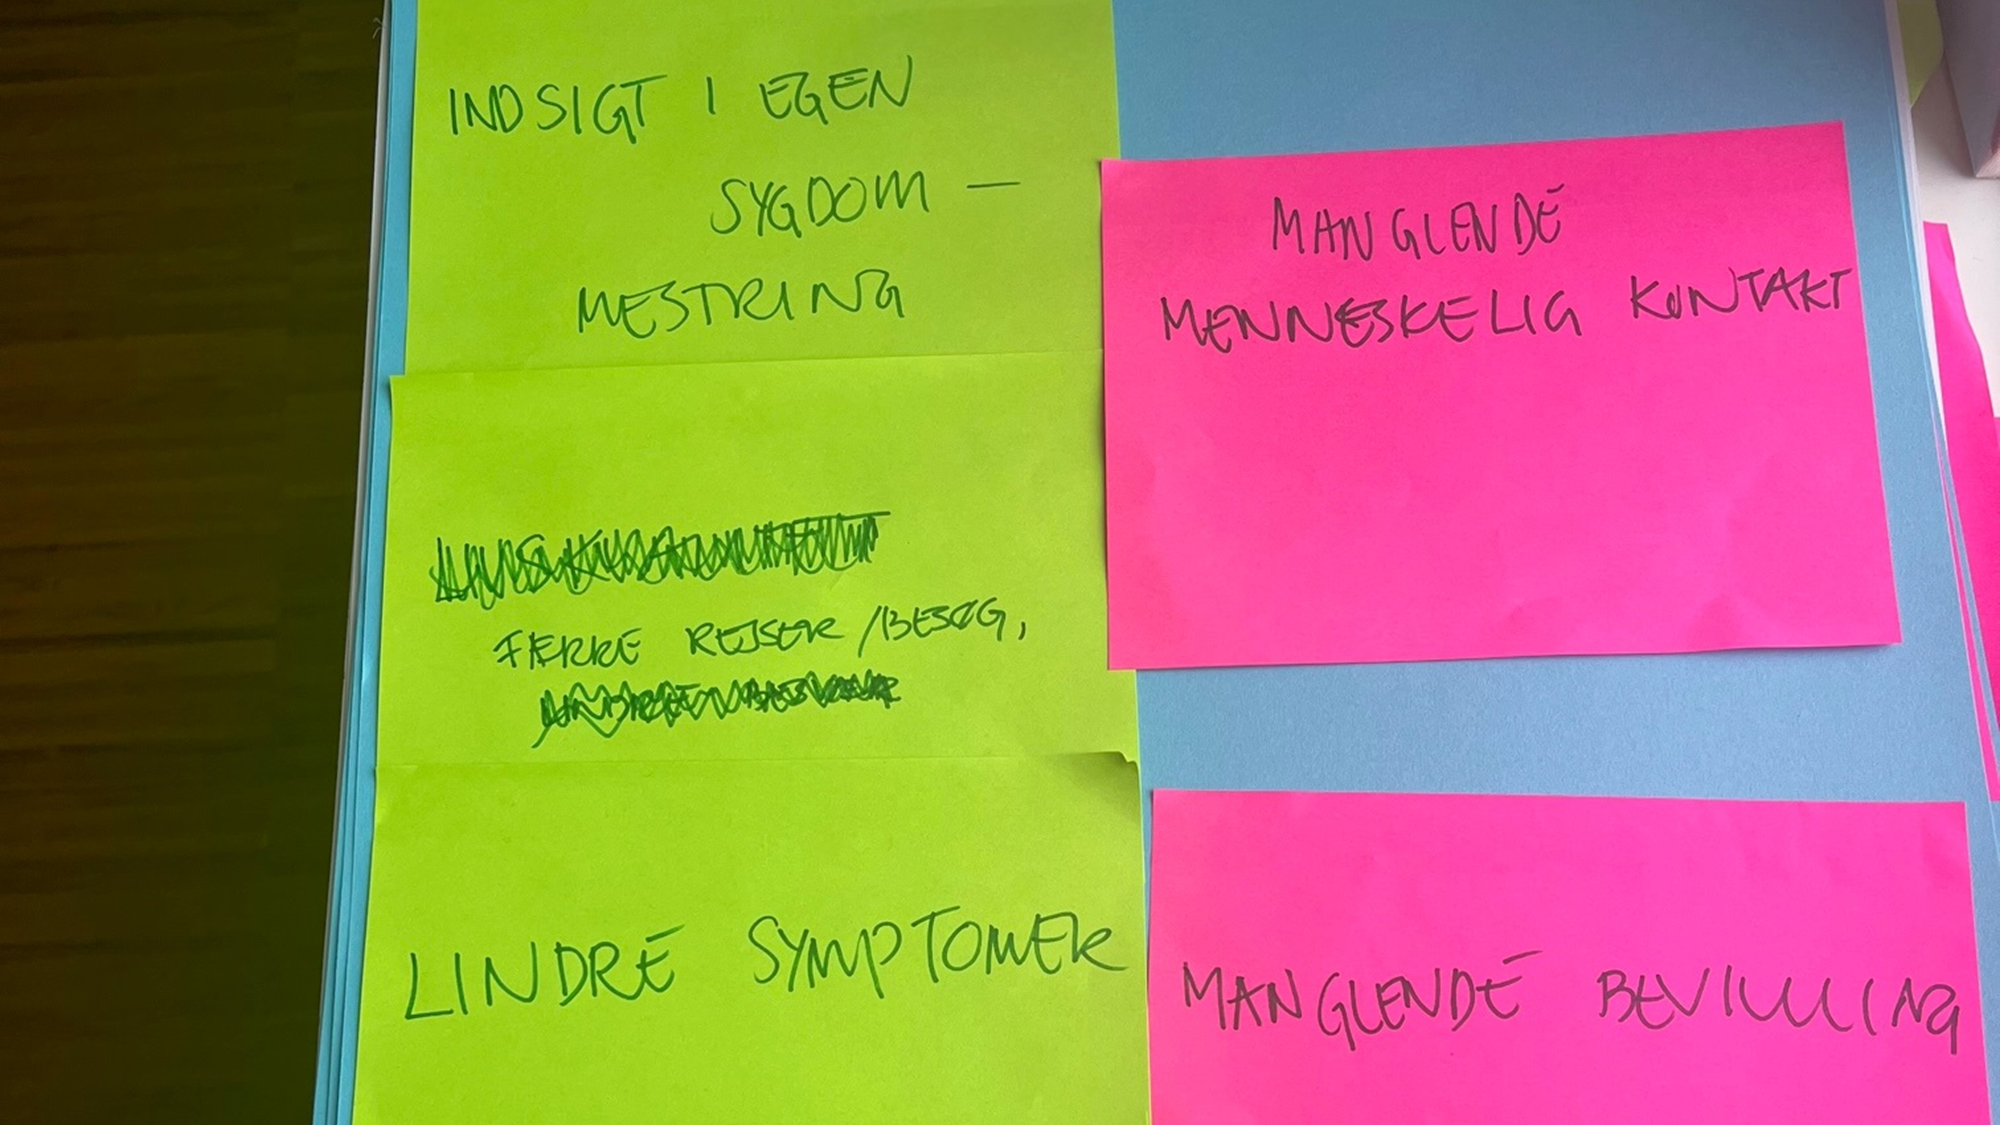 INDSIGT I EGEN
SYGDOM —
MESTRING
FÆRRE REJSER/BESØG,
LINDRE SYMPTOMER
MANGLENDE
MENNESKELIG KONTAKT
MANGLENDE BEVILLING